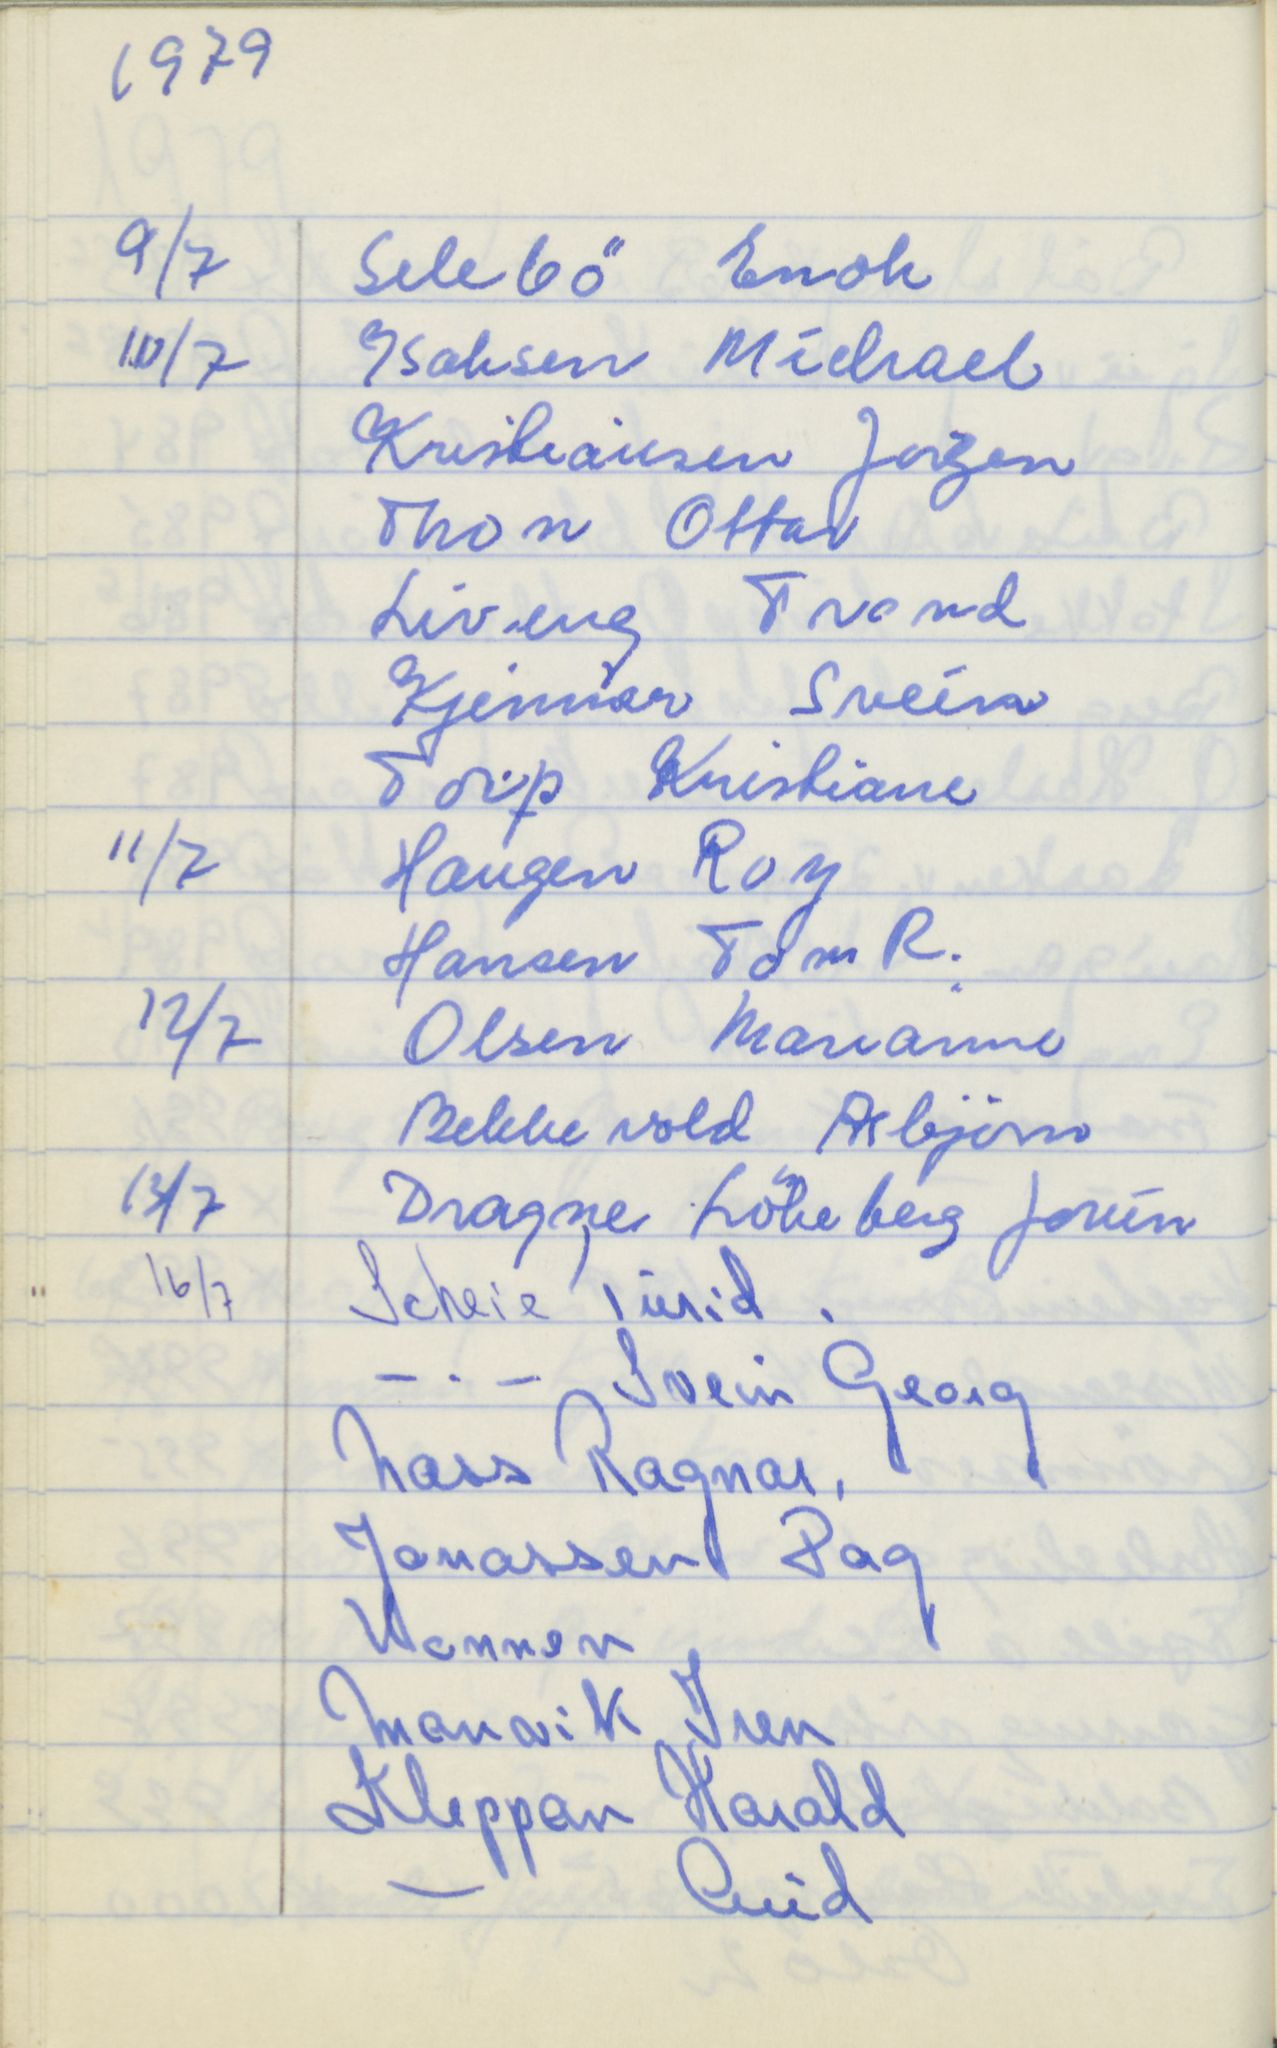 1979
9/7 Selebö Enok
10/7 Isaksen Michael
Kristiansen Jorgen
Thon Ottar
Liv.eng Trond
Kjennier Svein
Torp Kristiane
11/7 Haugen Roy
Hansen Tom R.
12/7 Olsen Marianne
Bekkevold Asbjörn
13/7 Dragnes Lökeberg Jorün
16/7 Scheie Turid.
— . — Svein Georg
Nass Ragnar,
Jonassen Dag
Wennen
Manvik Iren
Kleppan Harald
—